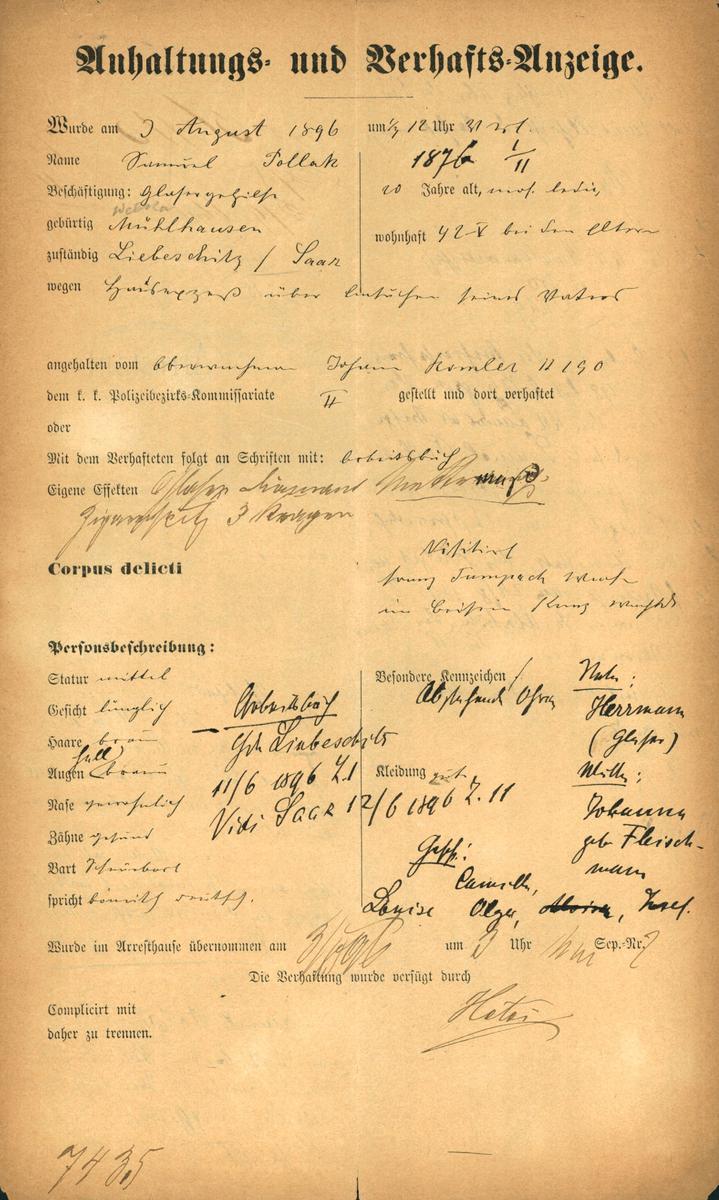 Anhaltungs- und Verhafts-Anzeige.
Wurde am 3 August 1896 um ½ 12 Uhr
Name Samuel Pollak 1876 1/11
Beschäftigung: Glasergehilfe 20 Jahre alt, mos. ledig,
gebürtig Mühlhausen
wohnhaft 42 V bei den Eltern
zuständig Liebeschitz / Saaz
wegen Hausexzeß über seines Vaters
angehalten vom Oberwachmann Johann II 190
dem k. k. Polizeibezirks-Kommissariate II gestellt und dort verhaftet
oder
Mit dem Verhafteten folgt an Schriften mit: Arbeitsbuch
Eigene Effekten Glaser Diamant
3 Kragen
Visitirt
Corpus delicti
Franz
im Beisein
Personsbeschreibung:
Statur mittel
Gesicht länglich
Haare braun
Augen hell braun
Nase gewöhnlich
Zähne gesund
Bart
spricht böhmisch deutsch.
Arbeitsbuch
Liebeschitz
11/6 1896 Z. 1
Vidi Saaz 12/6 1896 Z. 11
Besondere Kennzeichen / Abstehende Ohren
Kleidung gut
Vater:
Herrmann
(Glaser)
Mutter:
Johanna
geb Fleisch-
mann
Gesch:
Camilla,
Louise Olga, Josef.
Wurde im Arresthause übernommen am um 3 Uhr Sep.-Nr. 7
Die Verhaftung wurde verfügt durch
Complicirt mit
daher zu trennen.
7435